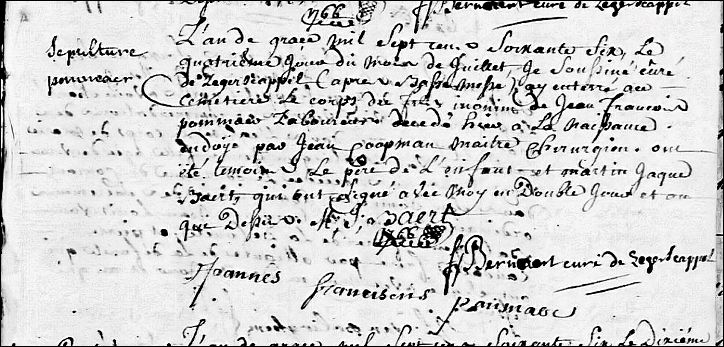 1766
Bernaert curé de Zegerscappel
Sepulture
L'an de grace mil Sept cens Soixante Six, Le
quatriême jour du mois de Juillet Je Soussiné curé
de Zegerscappel apres Basse Messe, ay enterré au
cemetiere Le corps du fils inonime de Jean Francois
pommaer Laboureur decedé hier a La Naissance
endoyé par Jean Coopman Maitre Chirurgien ont
été temoins Le père de L'enfant et martin Jaque
Baert, qui ont Signé avec Moy en Double Jour et an
que Dessus M: J: Baert
1766
Bernaert curé de Zegerscappel
Joannes Franciscus
L'an de grace mil Sept cens Soixante Six Le Dixiéme